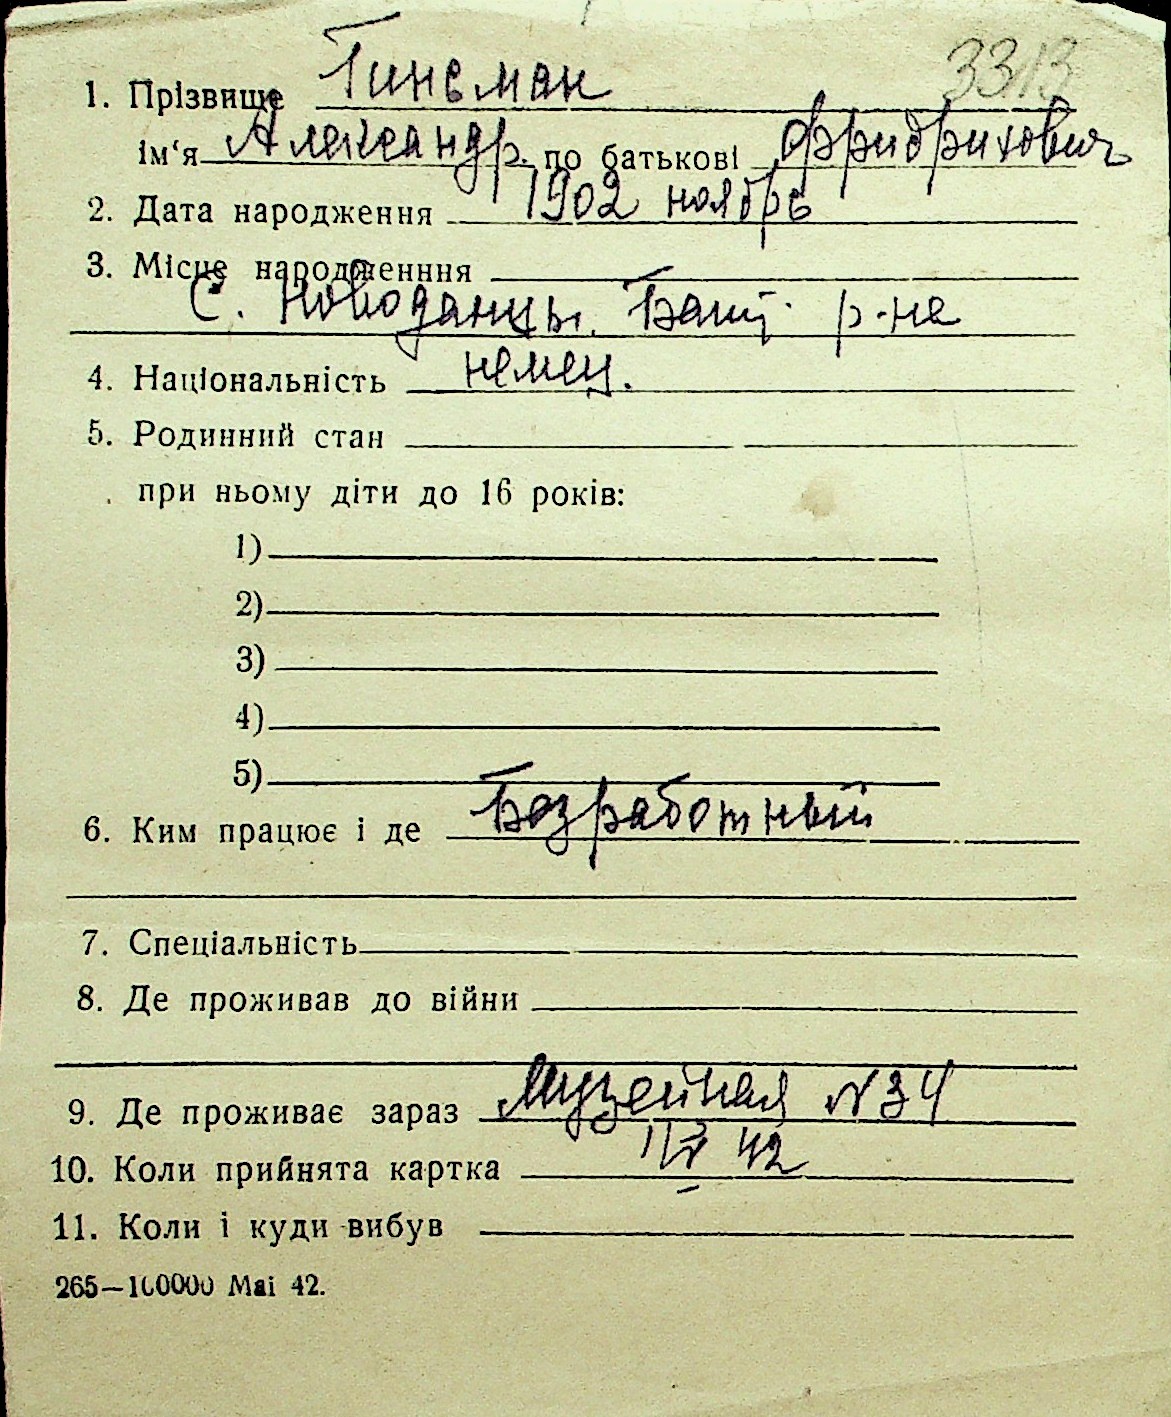 3313
1. Прізвище Гинсман
ім‘я Александр. по батькові Фридрихович
2. Дата народження 1902 ноябрь
3. Місце народженння
С. Новоданцы. Башт. р-на
4. Національність немец.
5. Родинний стан
при ньому діти до 16 років:
1)
2)
3)
4)
5)
6. Ким працює і де Безработный
7. Спеціальність
8. Де проживав до війни
9. Де проживає зараз Музейная N 34
10. Коли прийнята картка 42
11. Коли і куди вибув
265—100000 Маі 42.